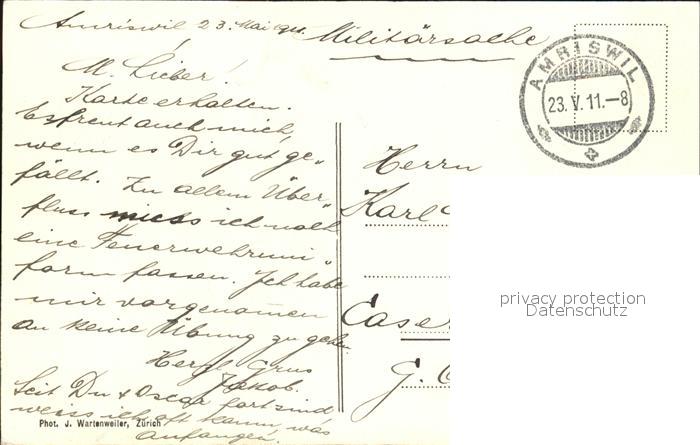 Amriswil 23. Mai 1911.
Militärsache
AMRISWIL
23. V. 11.–8
M. Lieber!
Karte erhalten.
Es freut auch mich,
wenn es Dir gut ge„
fällt. Zu allem Über„
fluss muss ich noch
eine Feuerwehruni„
form fassen. Ich habe
mir vorgenommen
an keine Übung zu gehen.
Herzl. Grus
Jakob.
Seit Du + Oscar fort sind
weiss ich oft kaum, was
anfangen.
Herrn
Karl
Caser
G.
Phot. J. Wartenweiler, Zürich
privacy protection
Datenschutz